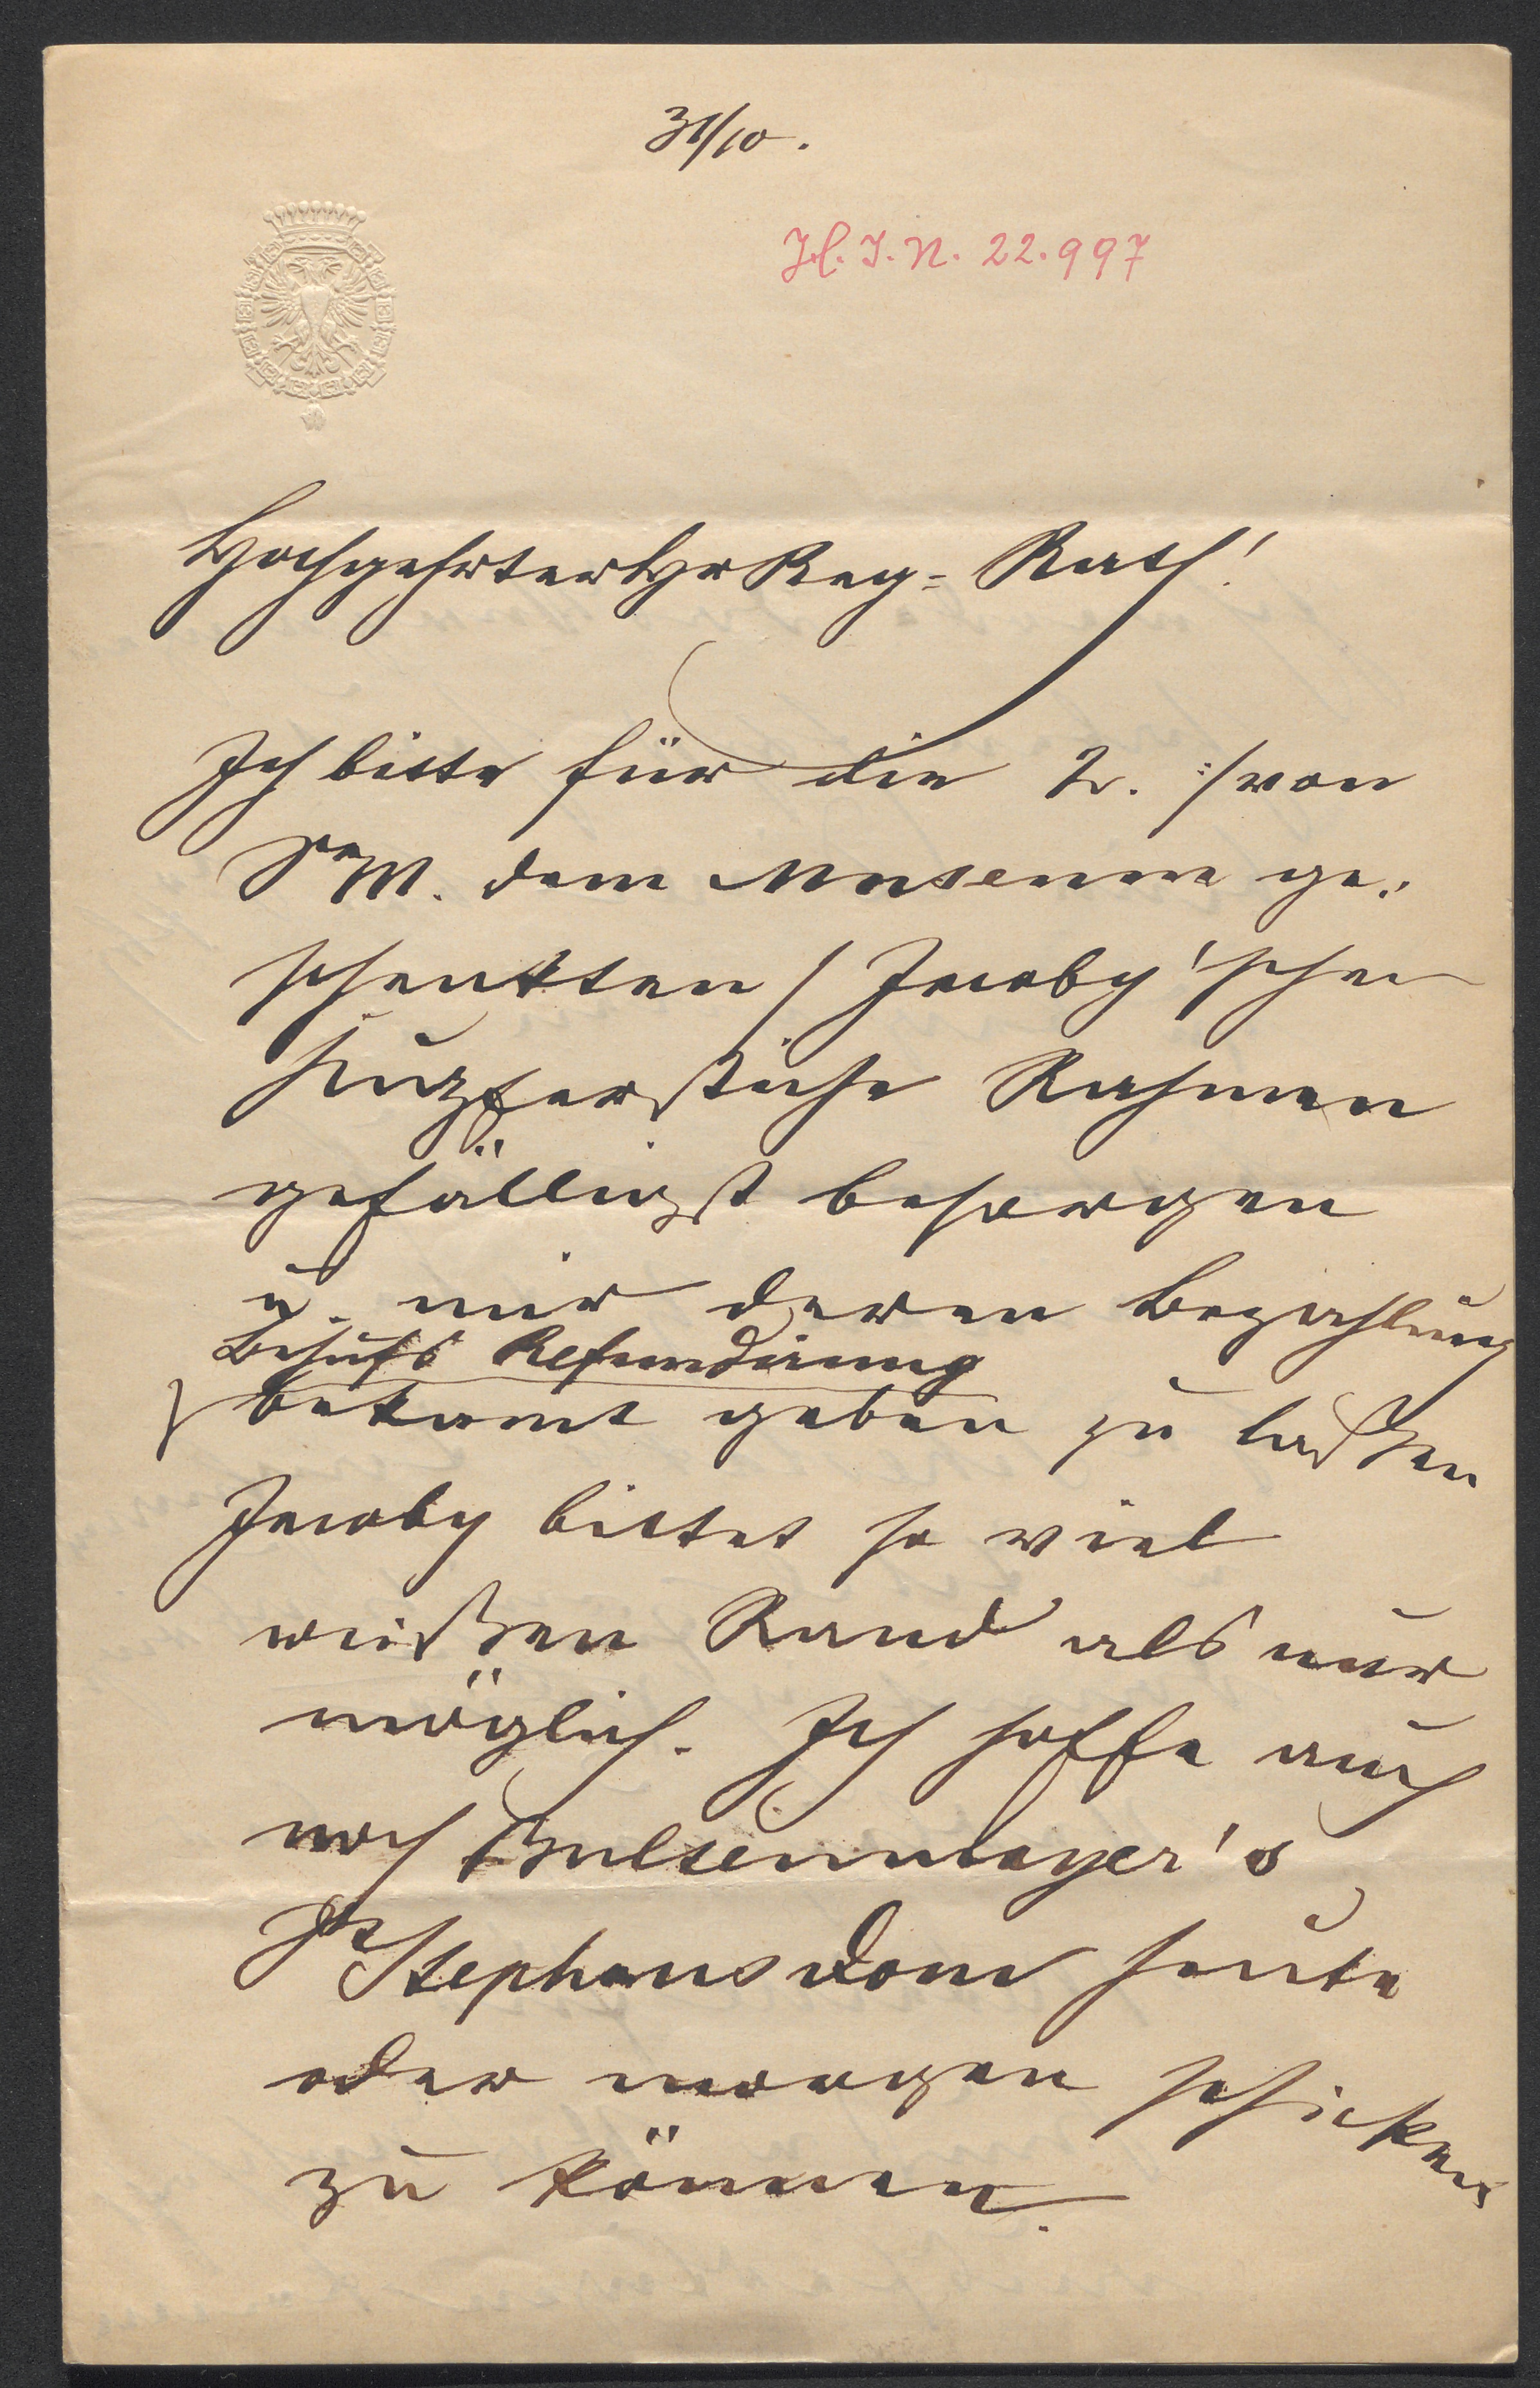 31/10.
H. I. N. 22.997
Hochgeehrter Hr Reg=Rath!
Ich bitte für die 2. :/von
Sr M. dem Museum ge:
schenkten/ Jacoby'schen
Kupferstiche Rahmen
gefälligst besorgen
u. mir deren Bezahlung
Behufs Refundirung
bekannt geben zu laßen
Jacoby bittet so viel
weißen Rand als nur
möglich. Ich hoffe auch
noch Bultemeyer's
St Stephansdom heute
oder morgen schicken
zu können.